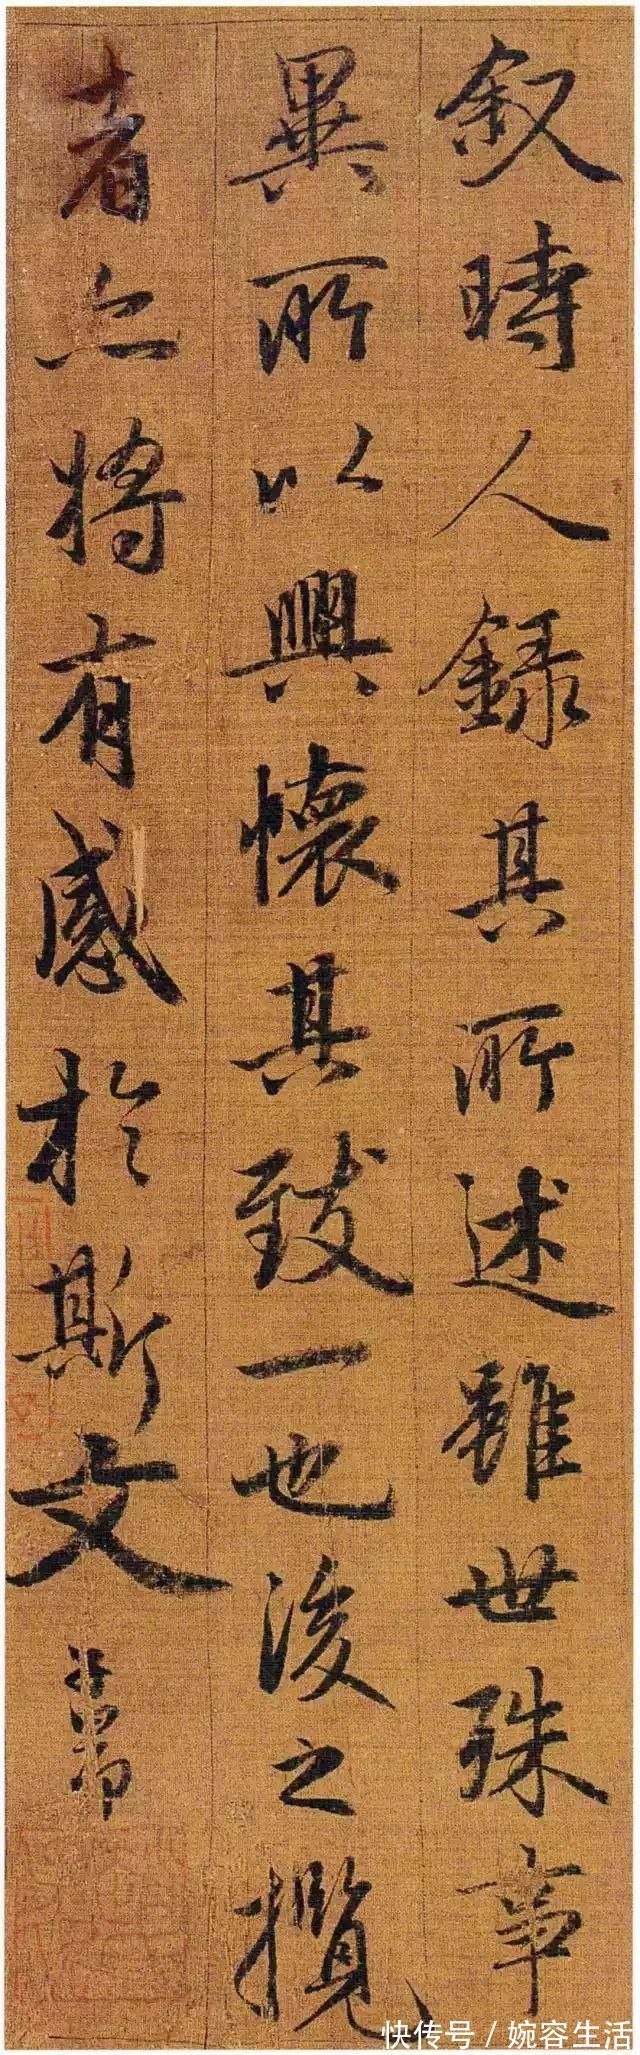 叙時人録其所述雖世殊事
異所以興懷其致一也後之攬
者亦将有感於斯文
快传号 / 婉容生活